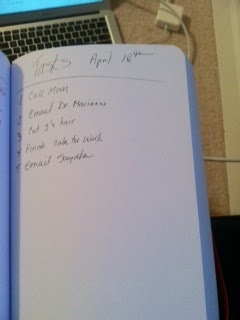 Tasks April 16th
1 Call Mom
2 Email Dr. Marianne
3 Cut J's hair
4 Finish Cake for Work
5 Email